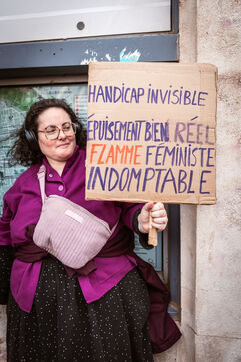 HANDICAP INVISIBLE
ÉPUISEMENT BIEN RÉEL
FLAMME FÉMINISTE
INDOMPTABLE